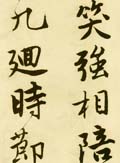 笑強相陪
九廻時節